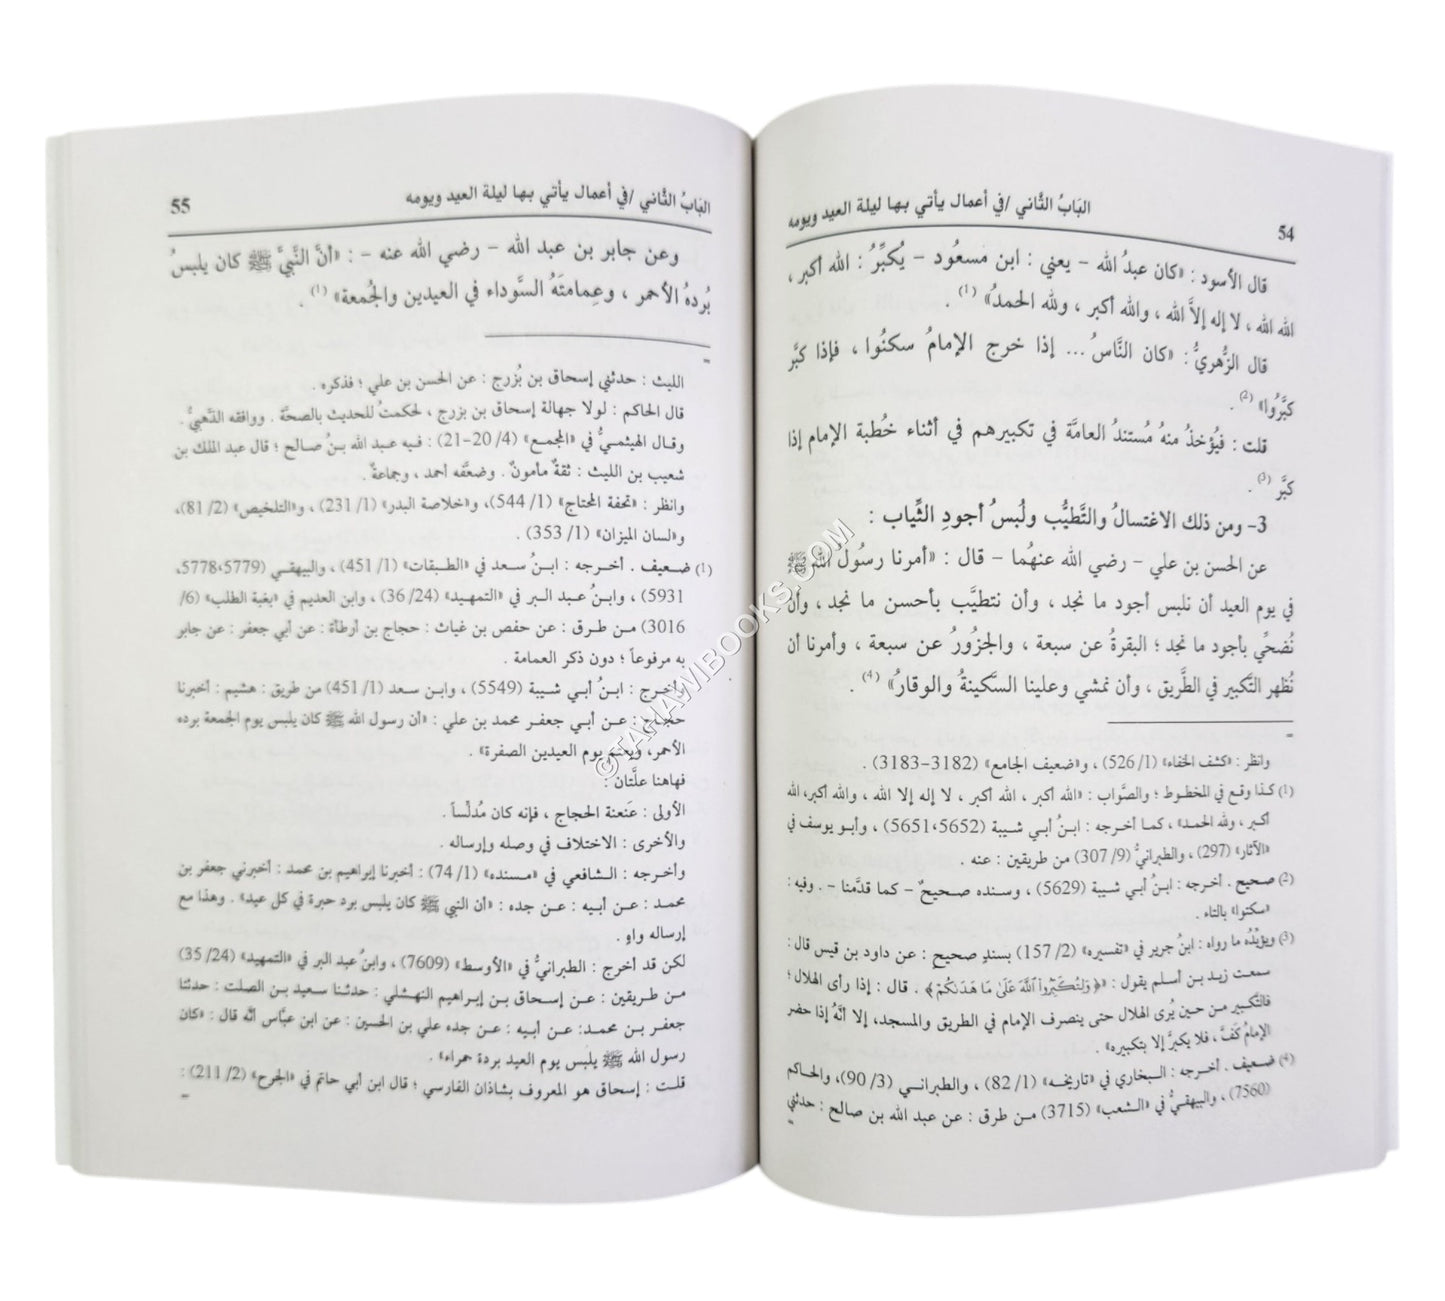 54
البَابُ الثَّاني /في أعمال يأتي بها ليلة العيد ويومه
قال الأسود : «كان عبدُ الله - يعني : ابن مسعُود - يُكبِّرُ : الله أكبر ،
الله الله ، لا إله إلاَّ الله ، والله أكبر ، ولله الحمدُ» (1) .
قال الزُّهريُّ : «كان النَّاسُ ... إذا خرج الإمامُ سكتُوا ، فإذا كبَّر
كبَّرُوا» (2) .
قلت : فيُؤخذُ منهُ مُستندُ العامَّة في تكبيرهم في أثناء خُطبة الإمام إذا
كبَّر (3) .
3- ومن ذلك الاغتسالُ والتَّطيُّب ولُبسُ أجودِ الثِّياب :
عن الحسن بن علي - رضي الله عنهُما - قال : «أمرنا رسُول الله ﷺ
في يوم العيد أن نلبس أجود ما نجد ، وأن نتطيَّب بأحسن ما نجد ، وأن
نُضحِّي بأجود ما نجد ؛ البقرةُ عن سبعة ، والجزُورُ عن سبعة ، وأمرنا أن
نُظهر التَّكبير في الطَّريق ، وأن نمشي وعلينا السَّكينةُ والوقارُ» (4) .
=
وانظر : «كشف الخفاء» (1/ 526) ، و«ضعيف الجامع» (3182-3183) .
(1) كذا وقع في المخطوط ؛ والصَّواب : «الله أكبر ، الله أكبر ، لا إله إلا الله ، والله أكبر، الله
أكبر ، ولله الحمد» ، كما أخرجه : ابنُ أبي شيبة (5651،5652) ، وأبو يوسف في
«الآثار» (297) ، والطبرانيُّ (9/ 307) من طريقين : عنه .
(2) صحيح . أخرجه : ابنُ أبي شيبة (5629) ، وسنده صحيحٌ - كما قدَّمنا - . وفيه :
«سكتوا» بالتاء .
(3) ويؤيِّدُه ما رواه : ابنُ جرير في «تفسيره» (2/ 157) بسندٍ صحيحٍ : عن داود بن قيس قال :
سمعت زيد بن أسلم يقول : «﴿وَلِتُكَبِّرُوا۟ ٱللَّهَ عَلَىٰ مَا هَدَىٰكُمْ﴾ . قال : إذا رأى الهلال ؛
فالتَّكبير من حين يُرى الهلال حتى ينصرف الإمام في الطريق والمسجد، إلا أنَّهُ إذا حضر
الإمامُ كَفَّ ، فلا يكبرَّ إلا بتكبيره» .
(4) ضعيف . أخرجه : البخاري في «تاريخه» (1/ 82) ، والطبراني (3/ 90)، والحاكم
(7560) ، والبيهقيُّ في «الشعب» (3715) من طرق : عن عبد الله بن صالح : حدثني
=
55
البَابُ الثَّاني /في أعمال يأتي بها ليلة العيد ويومه
وعن جابر بن عبد الله - رضي الله عنه - : «أنَّ النَّبيَّ ﷺ كان يلبسُ
بُردهُ الأحمر ، وعِمامتَهُ السَّوداء في العيدين والجُمعة» (1) .
=
الليث : حدثني إسحاق بن بُزرج : عن الحسن بن علي ؛ فذكره .
قال الحاكم : لولا جهالة إسحاق بن بزرج ، لحكمتُ للحديث بالصحَّة . ووافقه الذَّهبيُّ .
وقال الهيثميُّ في «المجمع» (4/ 20-21) : فيه عبد الله بنُ صالح ؛ قال عبد الملك بن
شعيب بن الليث : ثقةٌ مأمونٌ . وضعَّفه أحمد ، وجماعةٌ .
وانظر : «تحفة المحتاج» (1/ 544)، و«خلاصة البدر» (1/ 231) ، و«التلخيص» (2/ 81)،
و«لسان الميزان» (1/ 353) .
(1) ضعيف . أخرجه : ابنُ سعد في «الطبقات» (1/ 451) ، والبيهقي (5778،5779،
5931) ، وابنُ عبد البر في «التمهيد» (24/ 36) ، وابن العديم في «بغية الطلب» (6/
3016) من طرق : عن حفص بن غياث : حجاج بن أرطأة : عن أبي جعفر : عن جابر
به مرفوعاً ؛ دون ذكر العمامة .
وأخرج : ابنُ أبي شيبة (5549) ، وابن سعد (1/ 451) من طريق : هشيم : أخبرنا
حجاج : عن أبي جعفر محمد بن علي : «أن رسول الله ﷺ كان يلبس يوم الجمعة برده
الأحمر، ويعتم يوم العيدين الصفرة» .
فهاهنا علَّتان :
الأولى : عَنعنة الحجاج ، فإنه كان مُدلِّساً .
والأخرى : الاختلاف في وصله وإرساله .
وأخرجه : الشافعي في «مسنده» (1/ 74) : أخبرنا إبراهيم بن محمد : أخبرني جعفر بن
محمد : عن أبيه : عن جده : «أن النبي ﷺ كان يلبس برد حبرة في كل عيد» . وهذا مع
إرساله واهٍ .
لكن قد أخرج : الطبرانيُّ في «الأوسط» (7609) ، وابنُ عبد البر في «التمهيد» (24/ 35)
من طريقين : عن إسحاق بن إبراهيم النهشلي : حدثنا سعيد بن الصلت : حدثنا
جعفر بن محمد: عن أبيه : عن جده علي بن الحسين : عن ابن عبَّاس أنَّه قال : «كان
رسول الله ﷺ يلبس يوم العيد بردة حمراء» .
قلت : إسحاق هو المعروف بشاذان الفارسي ؛ قال ابن أبي حاتم في «الجرح» (2/ 211) :
=
©TAHAWIBOOKS.COM